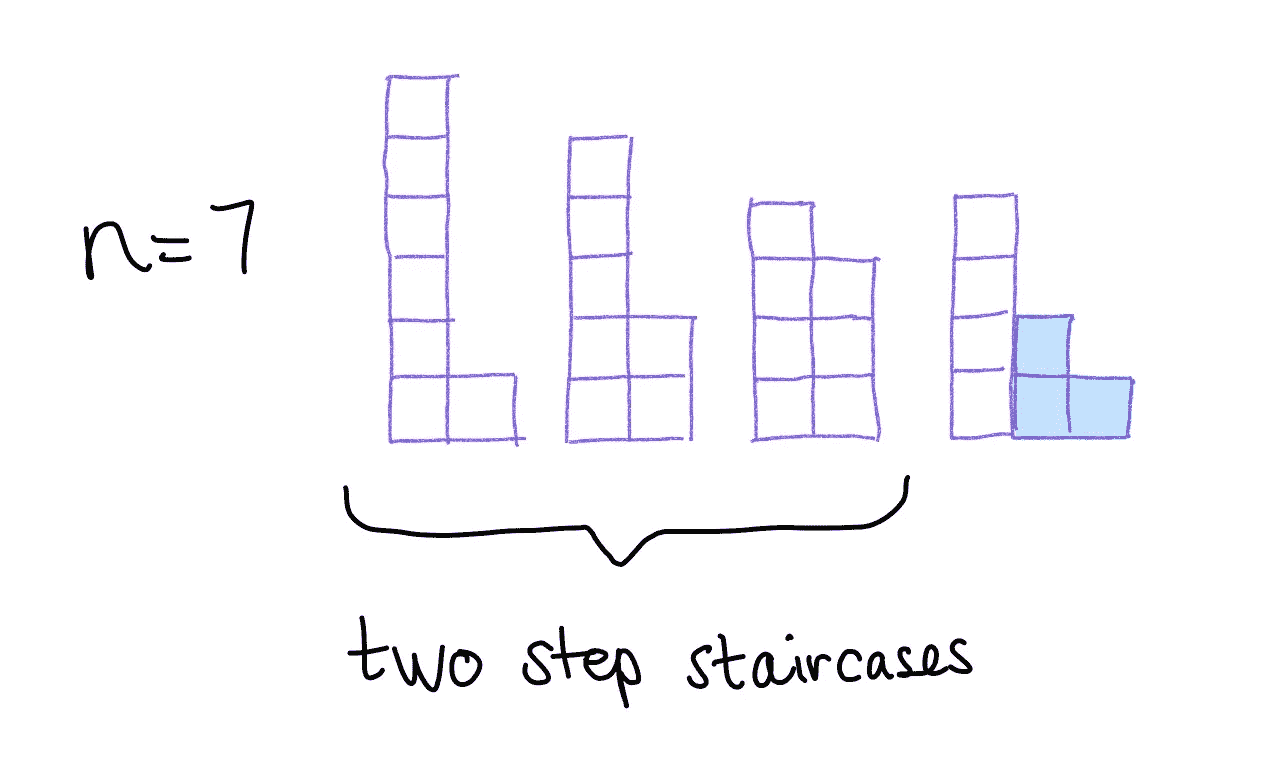 n=7
two step staircases